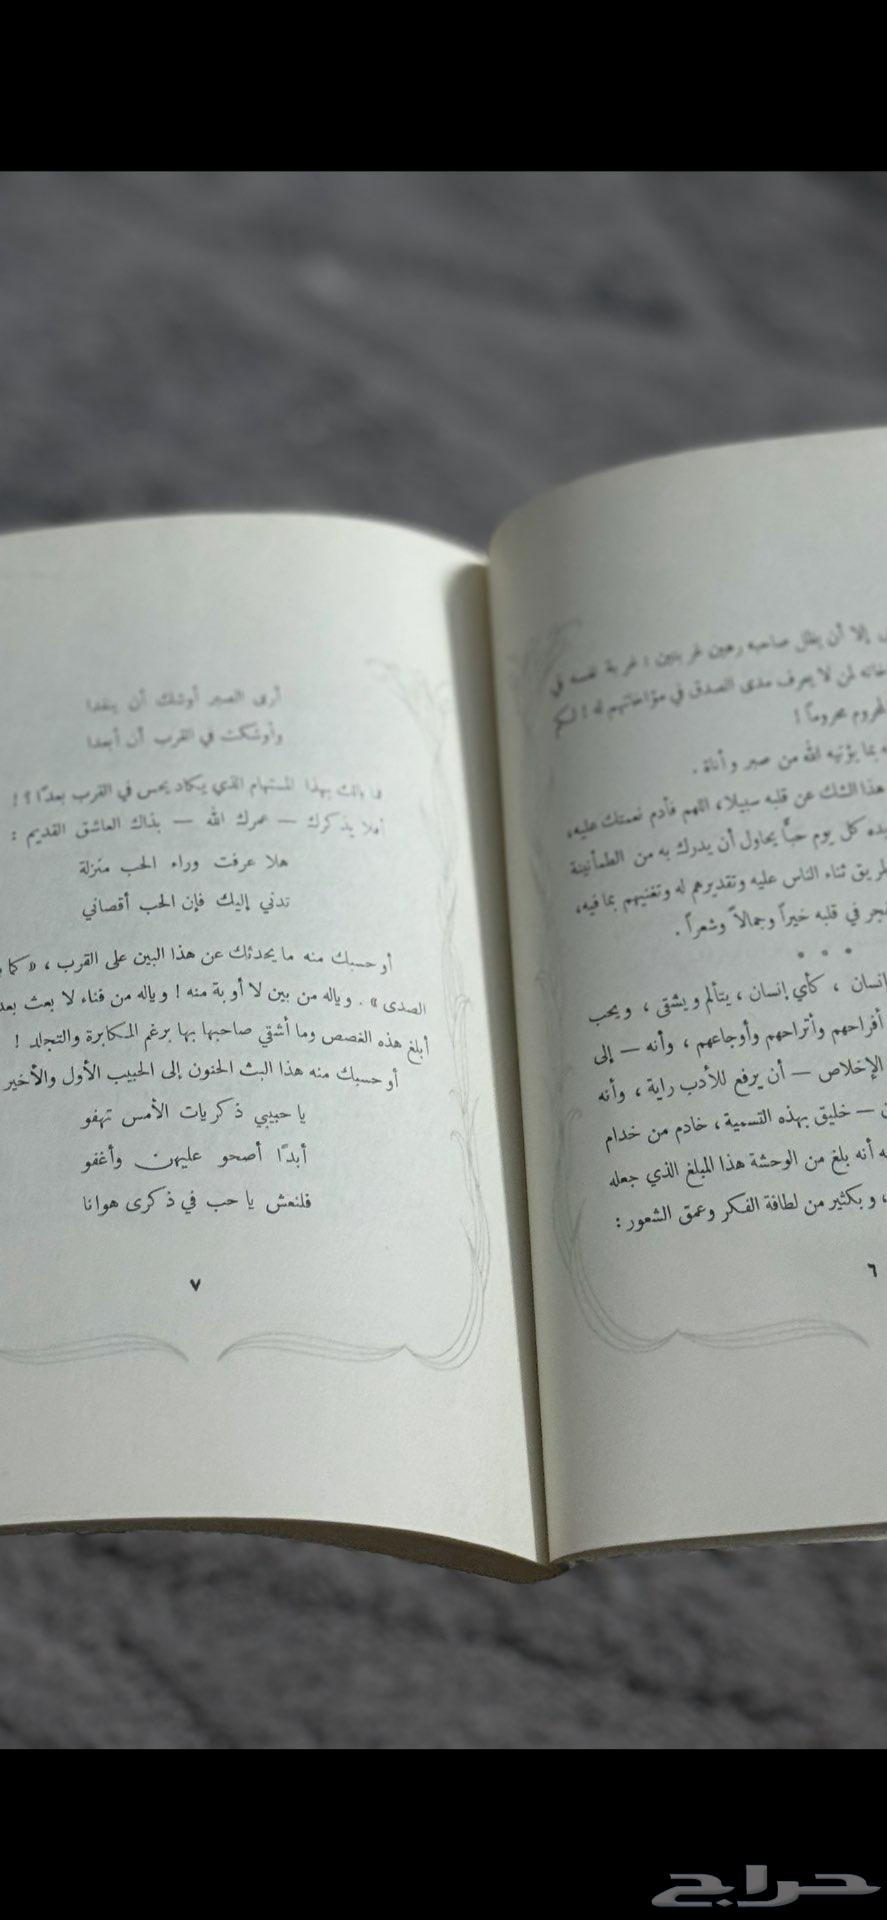 إلا أن يظل صاحبه رهين غربتين : غربة نفسه في
لمن لا يعرف مدى الصدق في مؤاخاتهم له ! لكم
محروماً !
بما يؤتيه الله من صبر وأناة .
هذا الشك عن قلبه سبيلا، اللهم فأدم نعمتك عليه،
كل يوم حبًّا يحاول أن يدرك به من الطمأنينة
ثناء الناس عليه وتقديرهم له وتغنيهم بما فيه،
في قلبه خيراً وجمالاً وشعراً .
* * *
إنسان ، كأي إنسان ، يتألم ويشقى ، ويحب
أفراحهم وأتراحهم وأوجاعهم ، وأنه — إلى
الإخلاص — أن يرفع للأدب راية ، وأنه
— خليق بهذه التسمية ، خادم من خدام
أنه بلغ من الوحشة هذا المبلغ الذي جعله
، وبكثير من لطافة الفكر وعمق الشعور :
٦
أرى الصبر أوشك أن ينفدا
وأوشكت في القرب أن أبعدا
فما بالك بهذا المستهام الذي يكاد يحس في القرب بعدًا ؟ !
أفلا يذكرك — عمرك الله — بذاك العاشق القديم :
هلا عرفت وراء الحب منزلة
تدني إليك فإن الحب أقصاني
أو حسبك منه ما يحدثك عن هذا البين على القرب ، « كما
الصدى » . وياله من بين لا أوبة منه ! وياله من فناء لا بعث بعد
أبلغ هذه الغصص وما أشقي صاحبها بها برغم المكابرة والتجلد !
أو حسبك منه هذا البث الحنون إلى الحبيب الأول والأخير
يا حبيبي ذكريات الأمس تهفو
أبدًا أصحو عليهن وأغفو
فلنعش يا حب في ذكرى هوانا
٧
حراج